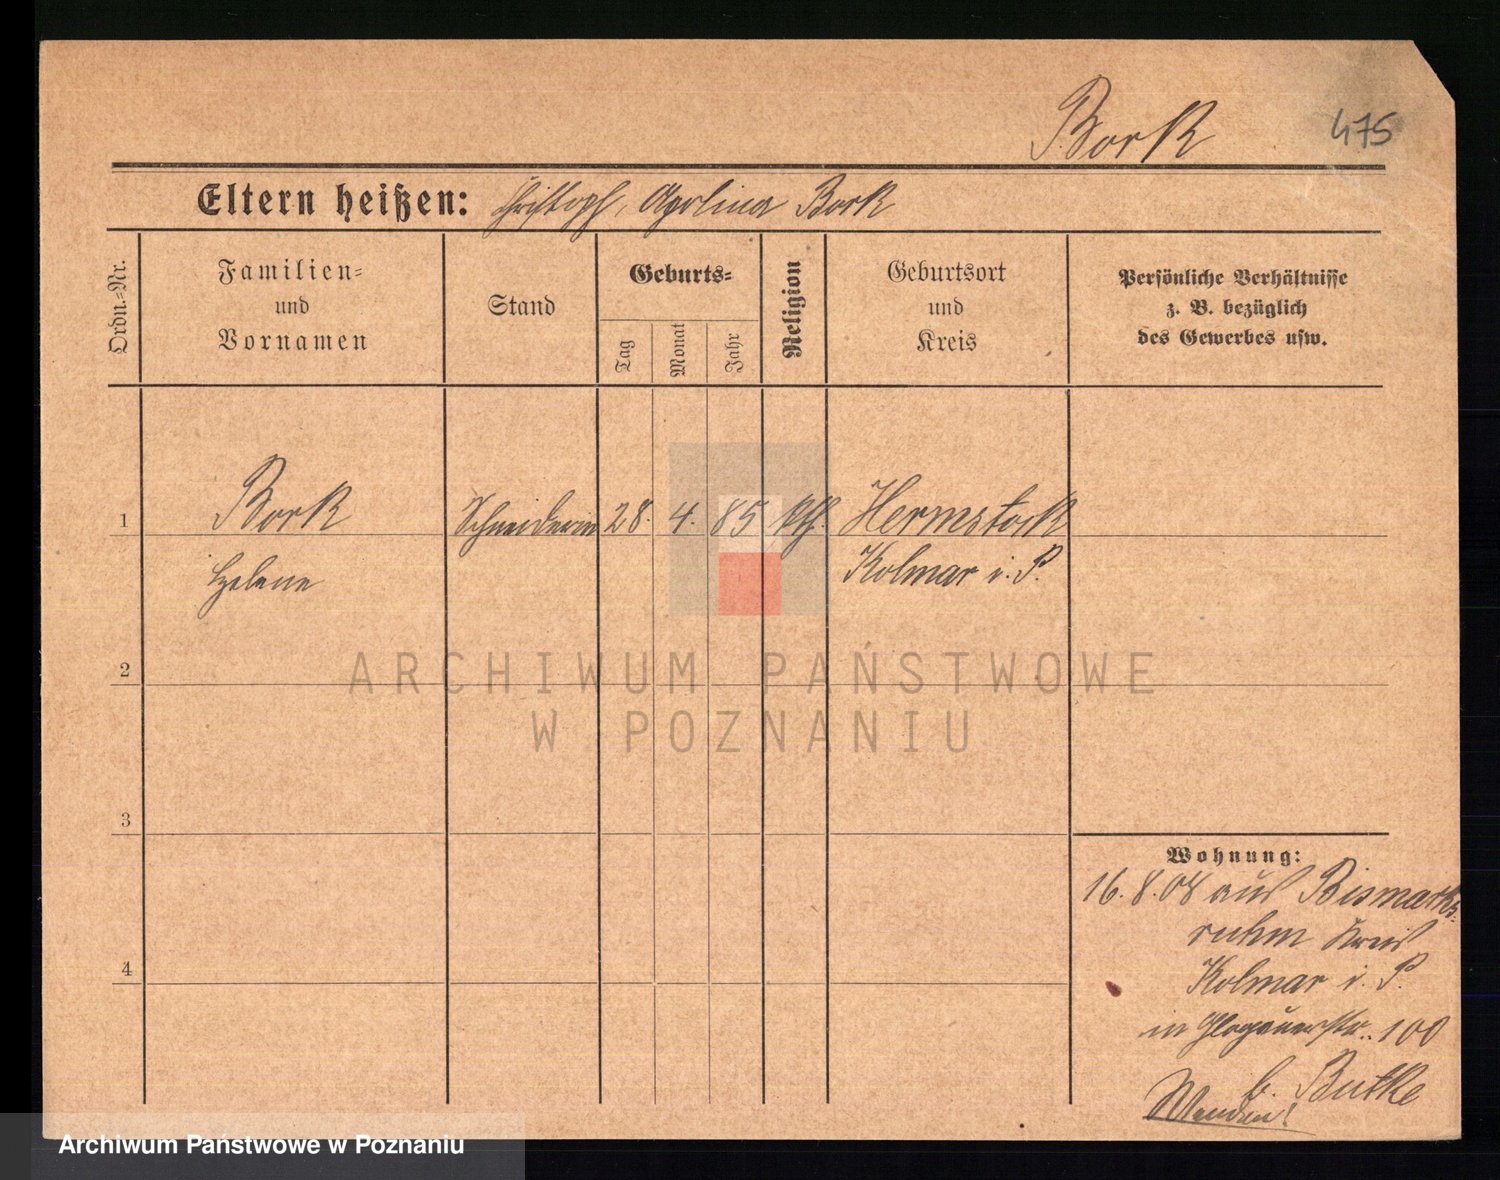 Bork
475
Eltern heißen: Christoph, Apolina Bork
Ordn.=Nr.
Familien=
und
Vornamen
Stand
Geburts=
Tag
Monat
Jahr
Religion
Geburtsort
und
Kreis
Persönliche Verhältnisse
z. B. bezüglich
des Gewerbes usw.
1
Bork
Schneiderin
28.
4.
85
kth.
Hermstock
Helene
Kolmar i. P.
2
ARCHIWUM PAŃSTWOWE
W POZNANIU
3
Wohnung:
16.8.08 aus Bismarks=
ruhm Kreis
4
Kolmar i. P.
in Glogauerstr. 100
b. Butke
Wenden!
Archiwum Państwowe w Poznaniu